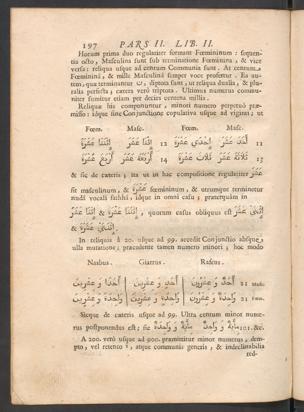 197 PARS II. LIB. II.
Horum prima duo regulariter formant Fœmininum: sequen-
tia octo, Masculina sunt sub terminatione Fœminina, & vice
versa: reliqua usque ad centum Communia sunt. At centum
Fœmininâ, & mille Masculinâ semper voce profertur. Ea au-
tem, quæ terminantur ون, diptota sunt, ut reliqua dualia, & plu-
ralia perfecta; cætera verò triptota. Ultimus numerus commu-
niter sumitur etiam per decies centena millia.
Reliquæ his componuntur, minori numero perpetuò præ-
misso: idque sine Conjunctione copulativa usque ad viginti; ut
Fœm. Masc. Fœm. Masc.
إِثْنَتَا عَشْرَةَ إِثْنَا عَشَرَ 12 إِحْدَي عَشْرَةَ أَحَدَ عَشَرَ 11
أَرْبَعَ عَشْرَةَ أَرْبَعَةَ عَشَرَ 14 ثَلَاثَ عَشْرَةَ ثَلَاثَةَ عَشَرَ 13
& sic de cæteris; ita ut in hac compositione regulariter عَشَرَ
sit masculinum, & عَشْرَةَ fœmininum, & utrumque terminetur
nudâ vocali fathhi, idque in omni casu; præterquàm in
إِثْنَا عَشَرَ & إِثْنَتَا عَشْرَةَ, quorum casus obliquus est إِثْنَيْ عَشَرَ
& إِثْنَتَيْ عَشْرَةَ.
In reliquis à 20. usque ad 99. accedit Conjunctio absque
ulla mutatione, præcedente tamen numero minori; hoc modo
Nasbus. Giarrus. Rafeus.
أَحَدًا وَعِشْرِينَ أَحَدٍ وَعِشْرِينَ أَحَدٌ وَعِشْرُونَ 21 masc.
وَاحِدَةً وَعِشْرِينَ وَاحِدَةٍ وَعِشْرِينَ وَاحِدَةٌ وَعِشْرُونَ 21 fœm.
Sicque de cæteris usque ad 99. Ultra centum minor nume-
rus postponendus est; sic مِايَةٌ وَوَاحِدٌ & مِايَةٌ وَوَاحِدَةٌ 101. &c.
A 200. verò usque ad 900. præmittitur minor numerus, dem-
pto, vel retento ة, atque communis generis, & indeclinabilia
red-